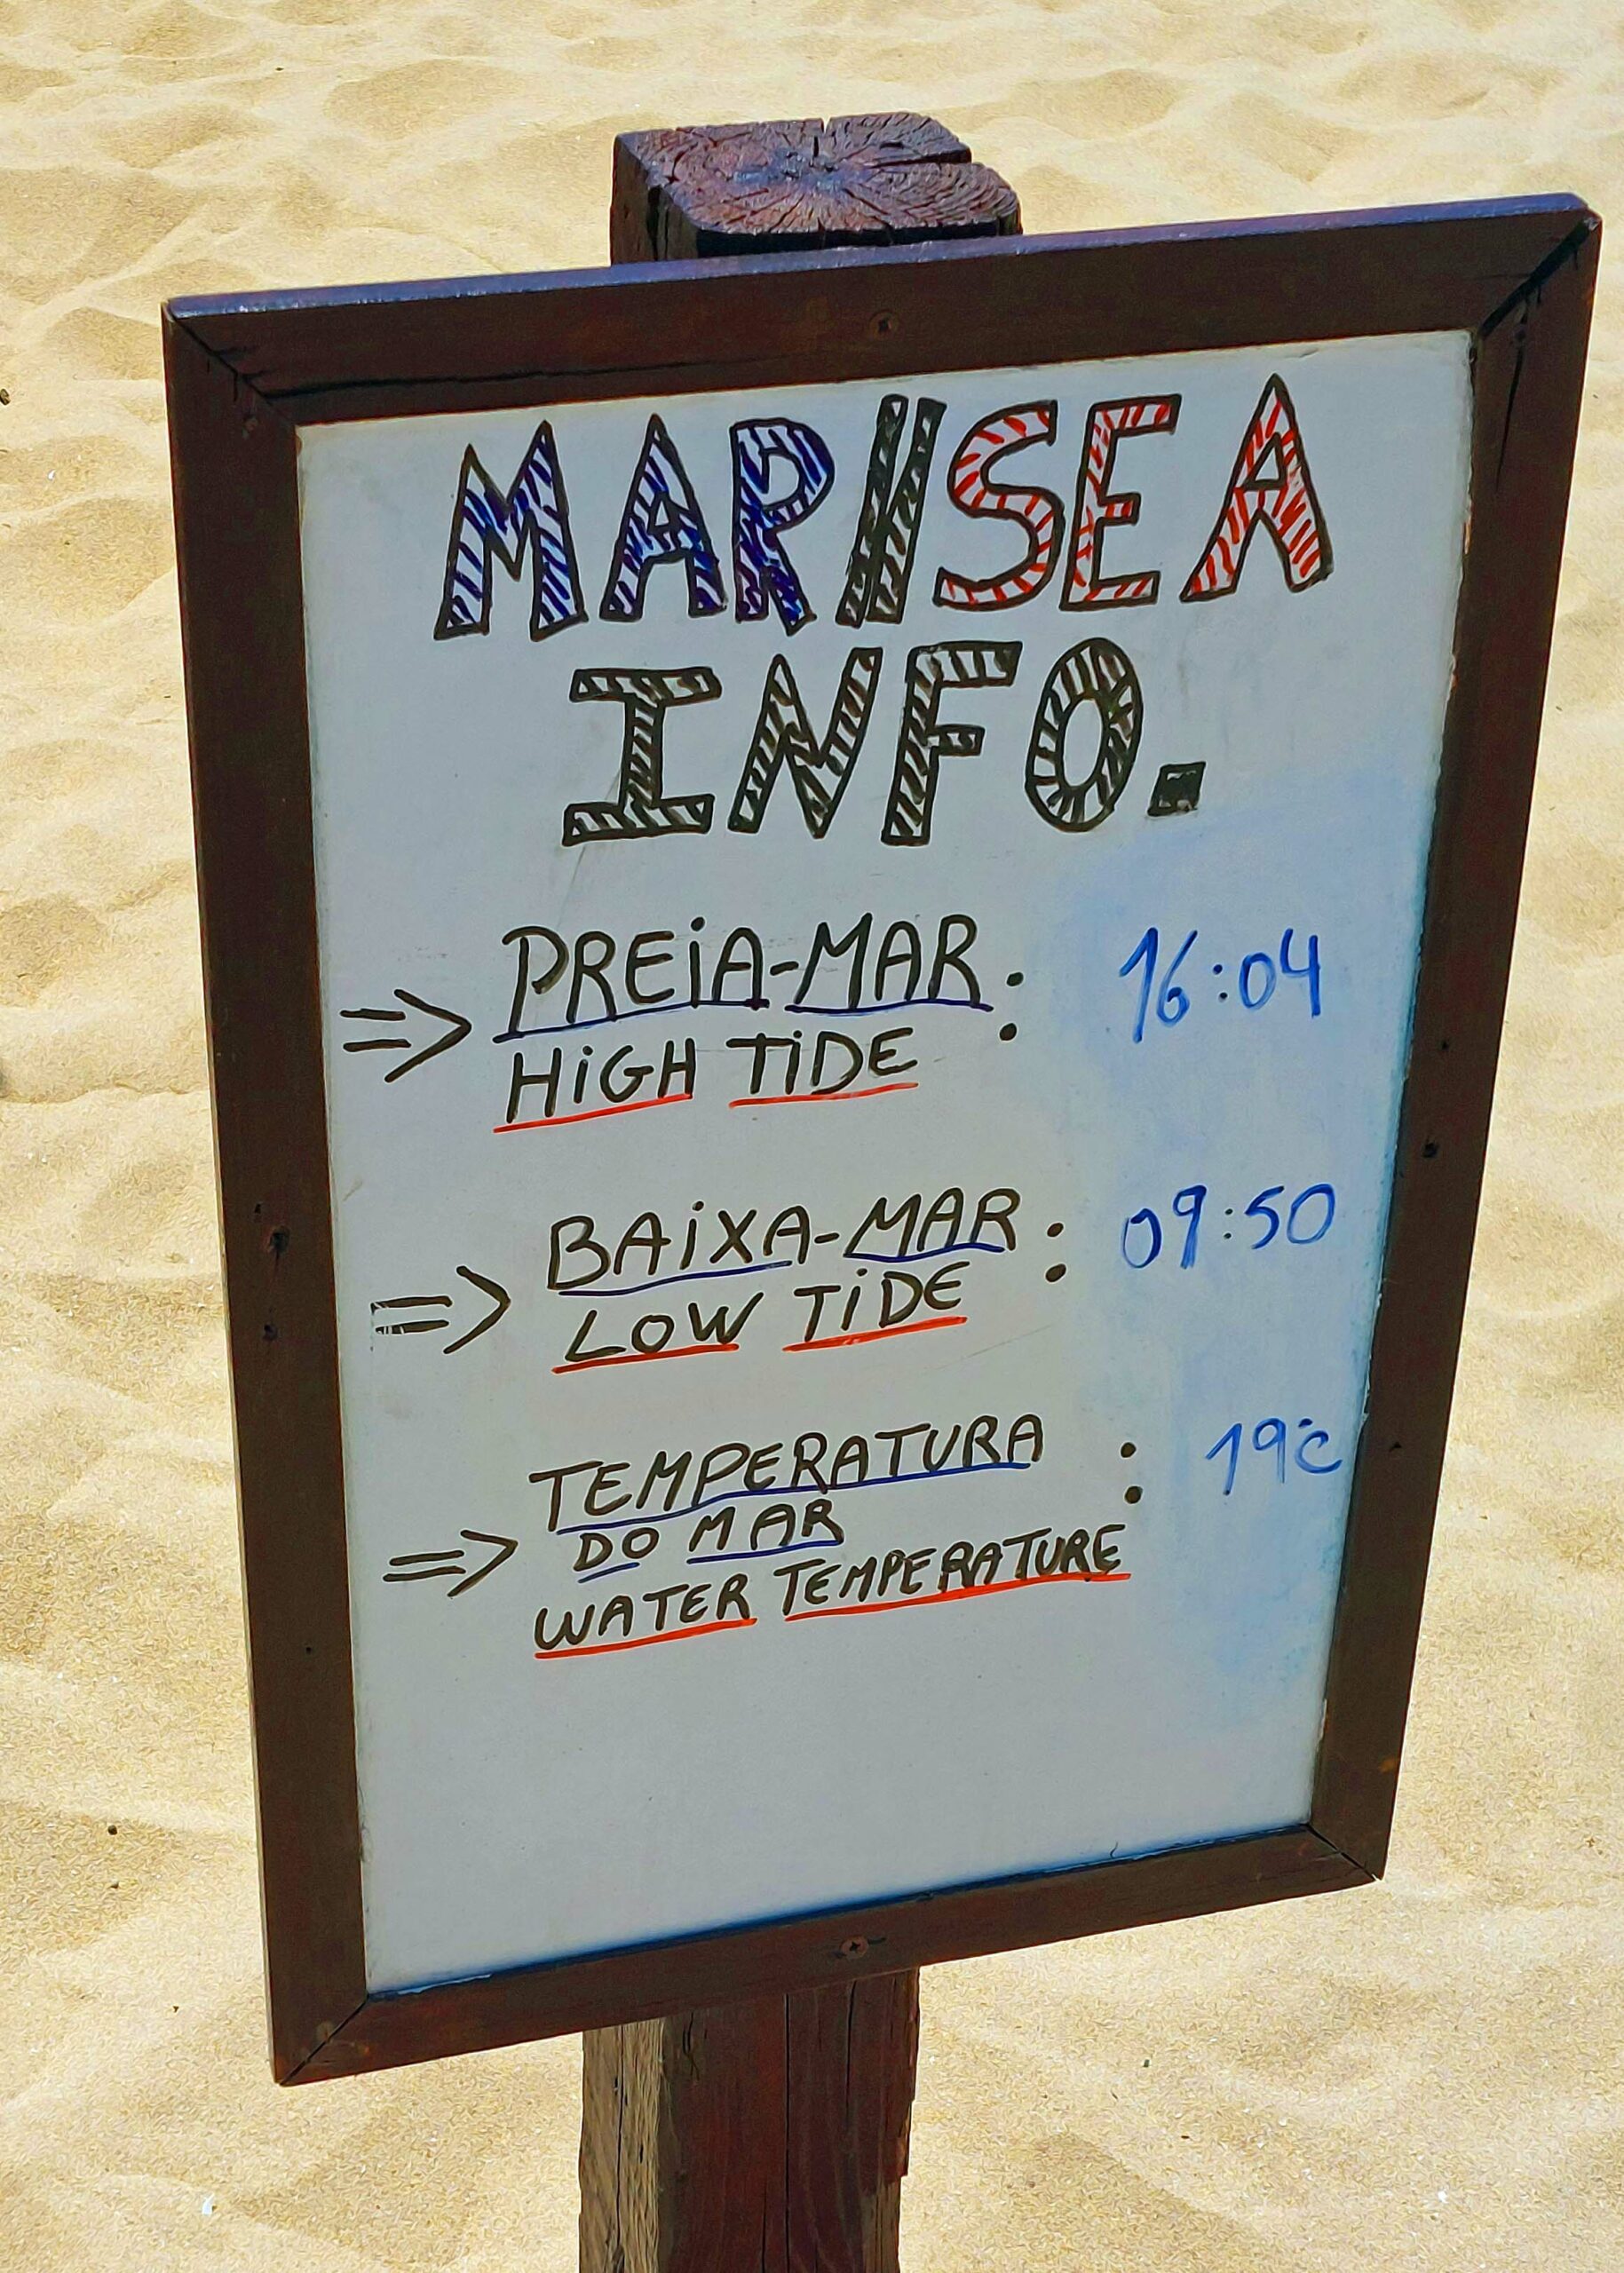 MAR//SEA
INFO.
=> PREIA-MAR : 16:04
HIGH TIDE
=> BAIXA-MAR : 09:50
LOW TIDE
TEMPERATURA : 19°C
=> DO MAR
WATER TEMPERATURE